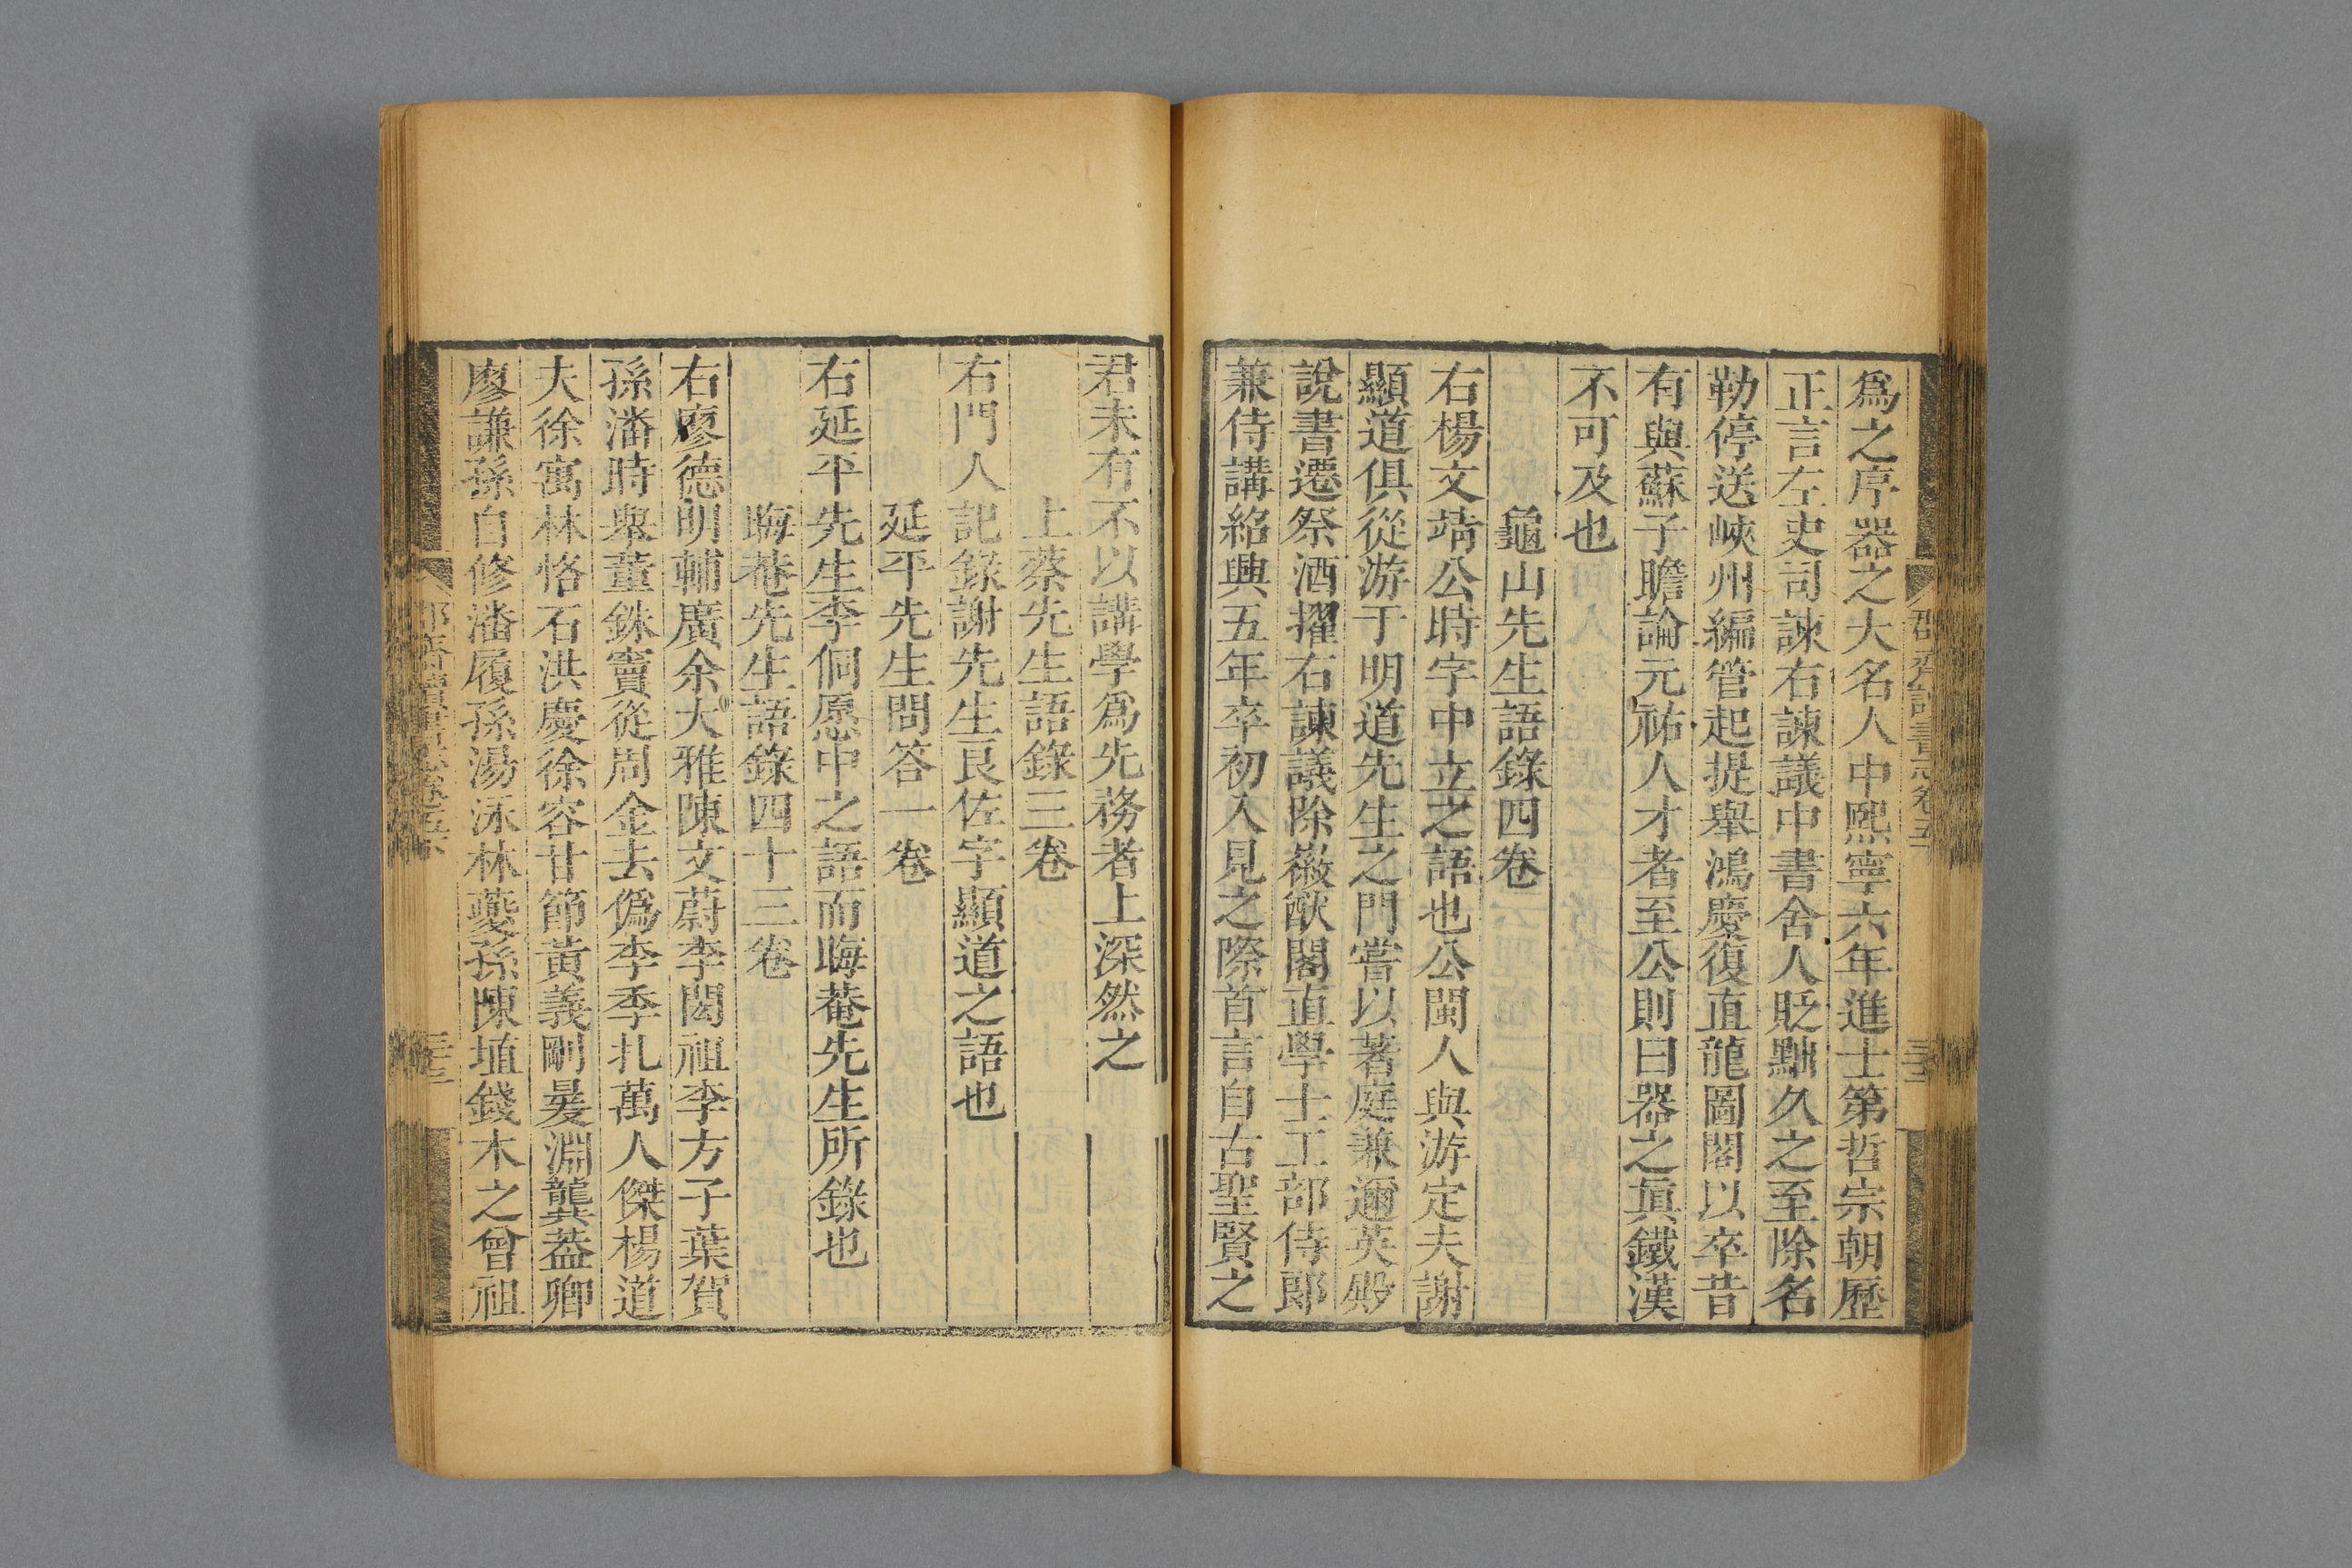 爲之序器之大名人中熙寧六年進士第哲宗朝歷
正言左史司諫右諫議中書舍人貶黜久之至除名
勒停送峽州編管起提舉鴻慶復直龍圖閣以卒昔
有與蘇子瞻論元祐人才者至公則曰器之眞鐵漢
不可及也
龜山先生語錄四卷
右楊文靖公時字中立之語也公閩人與游定夫謝
顯道俱從游于明道先生之門嘗以著庭兼邇英殿
說書遷祭酒擢右諫議除徽猷閣直學士工部侍郎
兼侍講紹興五年卒初入見之際首言自古聖賢之
君未有不以講學爲先務者上深然之
上蔡先生語錄三卷
右門人記錄謝先生良佐字顯道之語也
延平先生問答一卷
右延平先生李侗愿中之語而晦菴先生所錄也
晦菴先生語錄四十三卷
右廖德明輔廣余大雅陳文蔚李閎祖李方子葉賀
孫潘時舉董銖竇從周金去僞李季札萬人傑楊道
夫徐寓林恪石洪慶徐容甘節黃義剛㬊淵龔蓋卿
廖謙孫自修潘履孫湯泳林夔孫陳埴錢木之曾祖